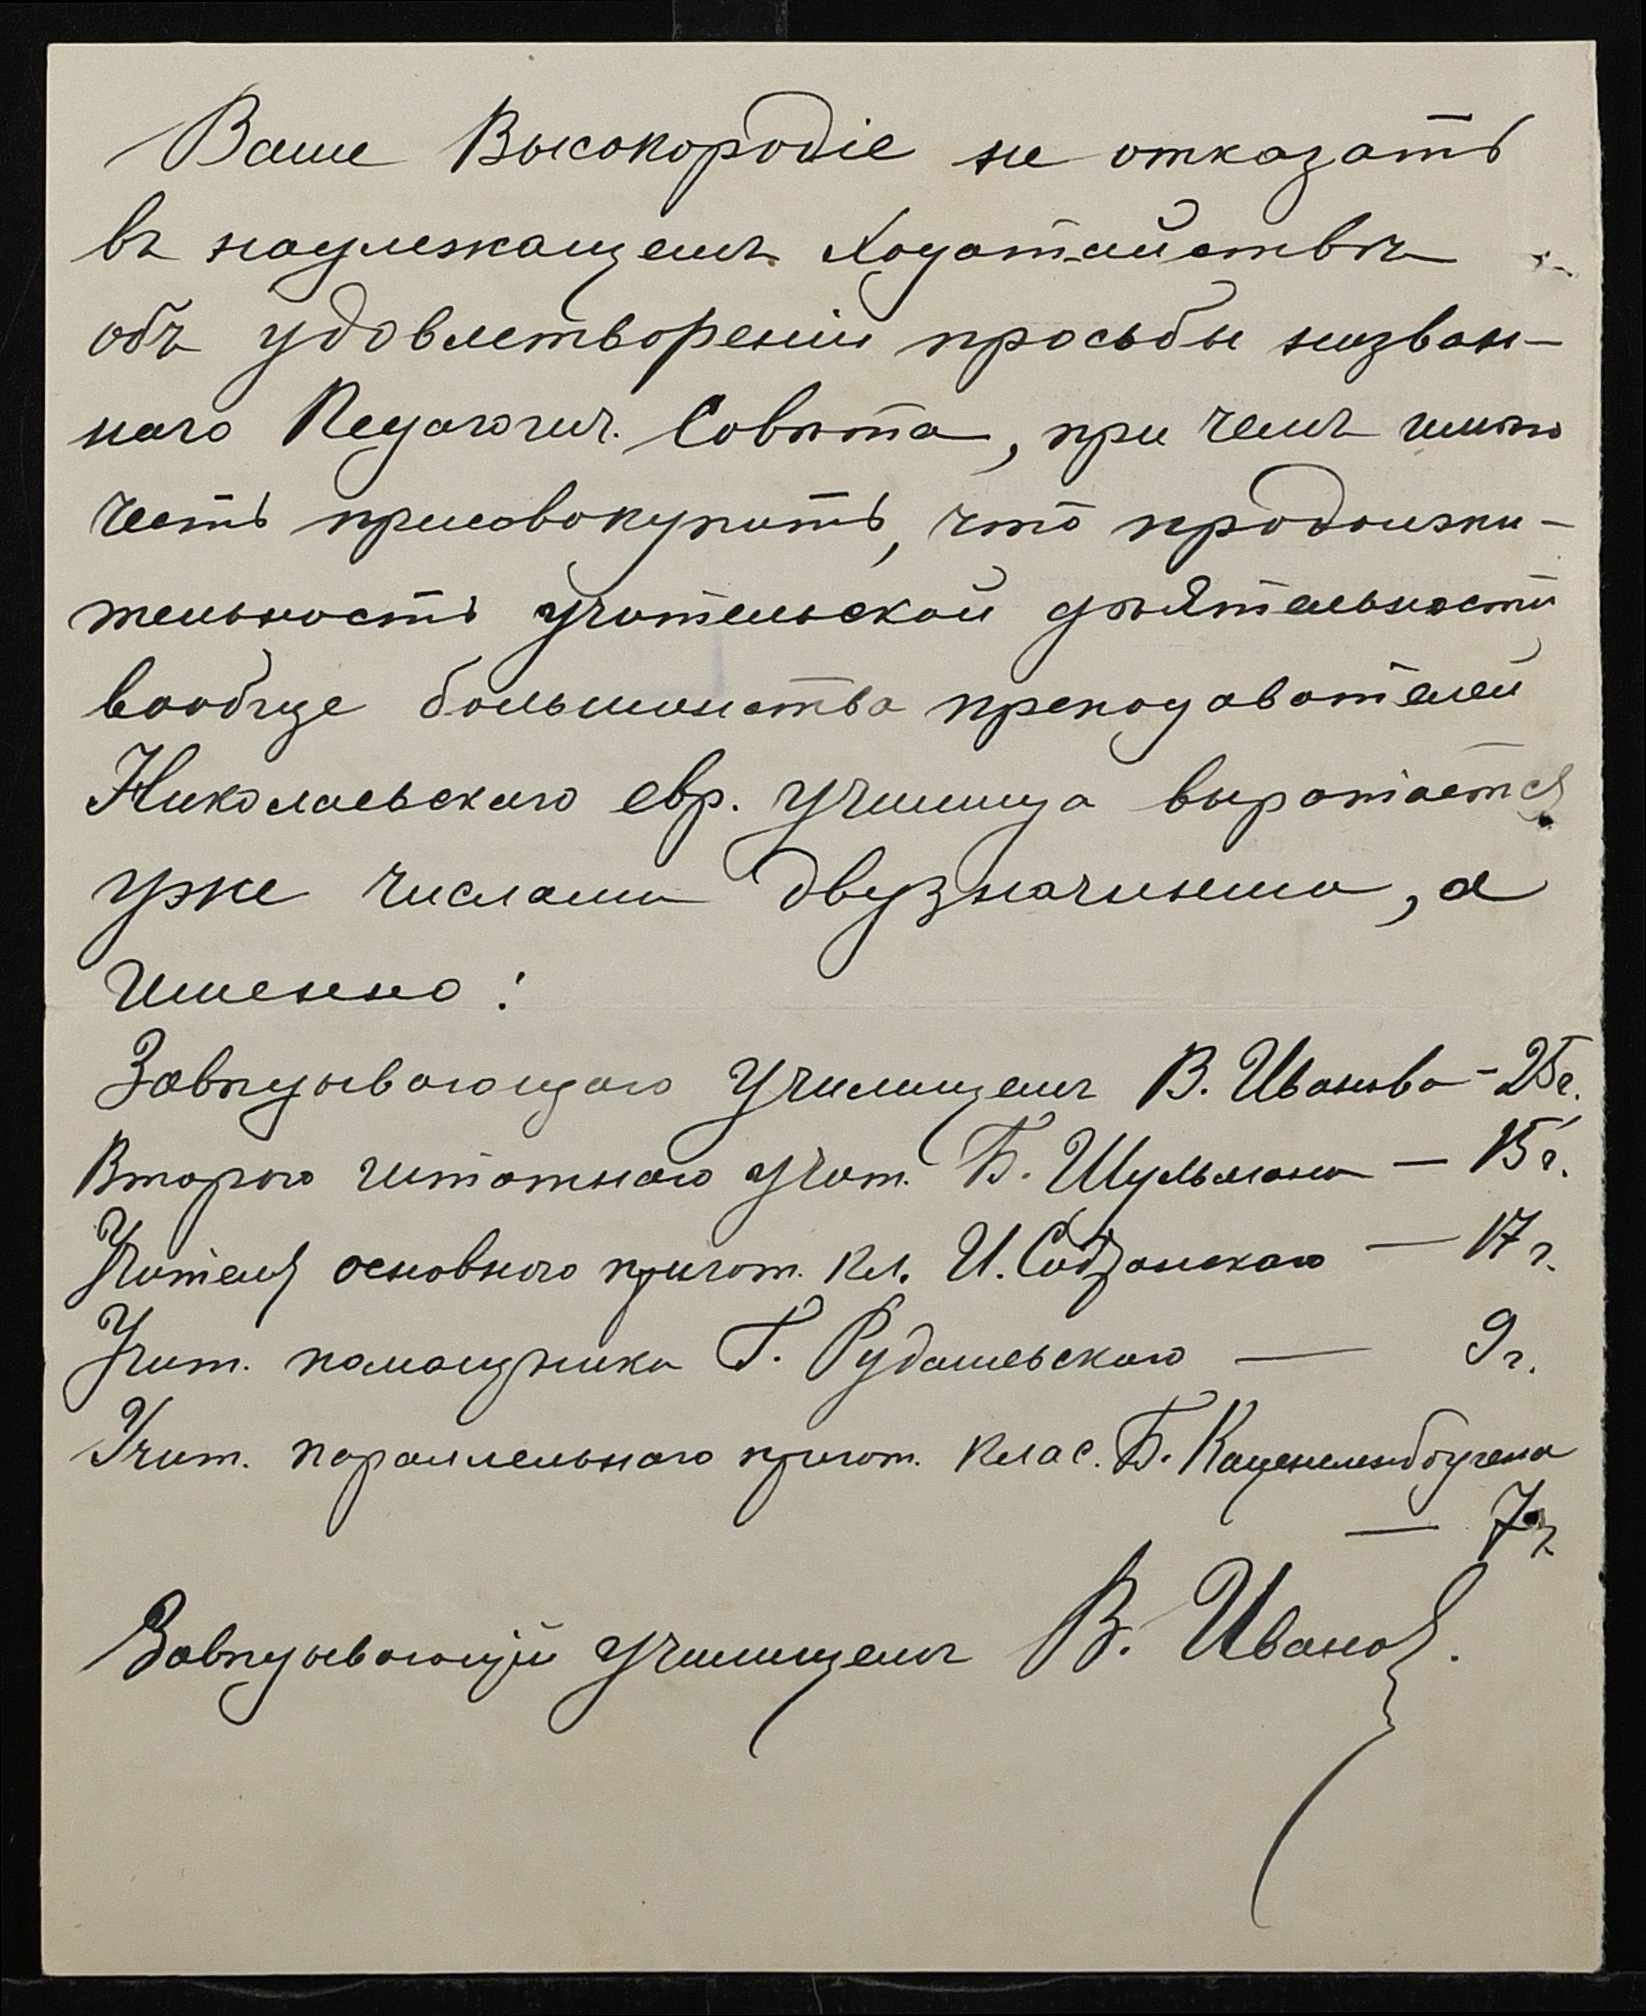 Ваше Высокородіе не отказать
въ надлежащемъ ходатайствѣ
объ удовлетвореніи просьбы назван-
наго Педагогич. Совѣта, при чемъ имѣю
честь присовокупить, что продолжи-
тельность учительской дѣятельности
вообще большинства преподавателей
Николаевскаго евр. училища выражается
уже числами двузначными, а
именно:
Завѣдывающаго училищемъ В. Иванова - 25 г.
Второго штатнаго учит. Б. Шульмана — 15 г.
Учителя основного пригот. кл. И. — 17 г.
Учит. помощника Г. Рудашевскаго — 9 г.
Учит. параллельнаго пригот. клас. Б. Каценеленбогена
— 7 г.
Завѣдывающій училищемъ В. Ивановъ.